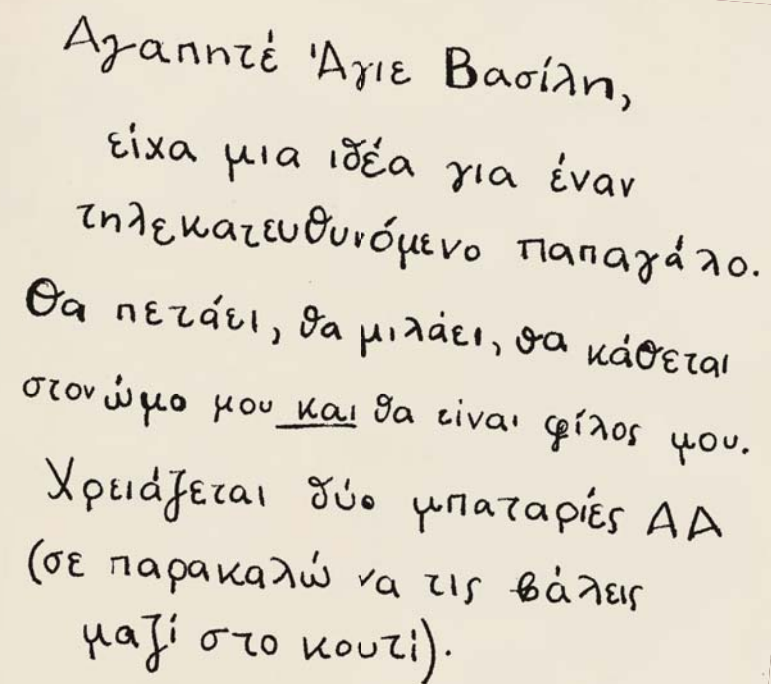 Αγαπητέ Άγιε Βασίλη,
είχα μια ιδέα για έναν
τηλεκατευθυνόμενο παπαγάλο.
Θα πετάει, θα μιλάει, θα κάθεται
στον ώμο μου και θα είναι φίλος μου.
Χρειάζεται δύο μπαταρίες ΑΑ
(σε παρακαλώ να τις βάλεις
μαζί στο κουτί).